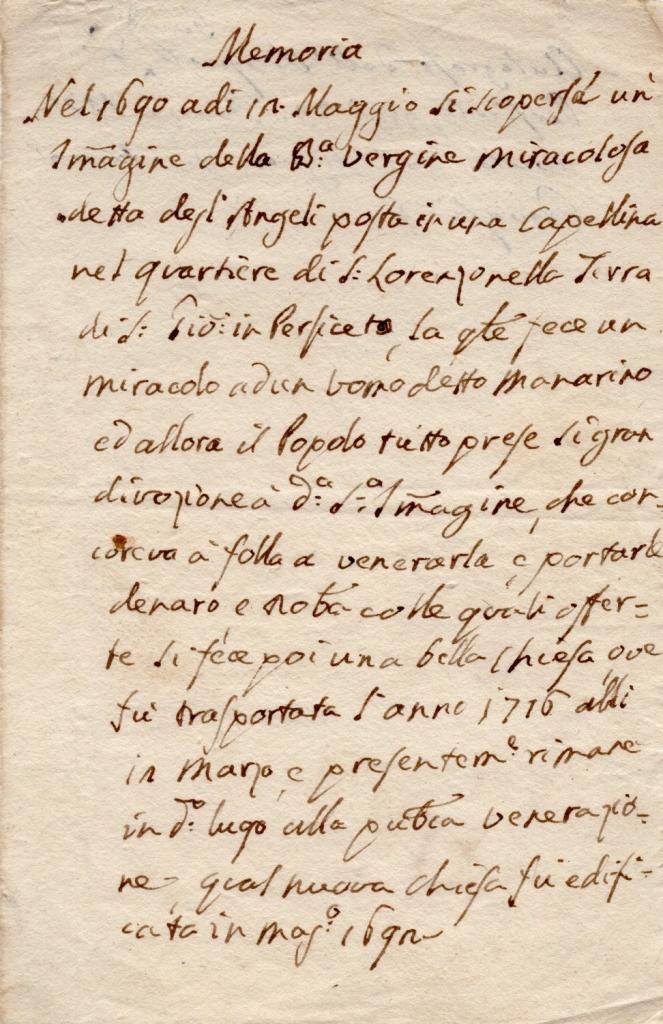 Memoria
Nel 1690 adi in Maggio si scoperse un'
Immagine della B.a vergine miracolosa
detta degl'Angeli posta in una Capellina
nel quartiere di S: Lorenzo nella Terra
di S: Gio: in Persiceto, la qle fece un
miracolo ad un uomo detto Manarino
ed allora il Popolo tutto prese si gran
divozione à d.a S.a Imagine, che con-
correva à folla a venerarla e portarle
denaro e roba colle quali offer=
te si fece poi una bella Chiesa ove
fù trasportata l'anno 1716 alli
in Marzo, e presentem.e rimane
in d.o lugo alla publica venerazio-
ne, qual nuova chiesa fu edifi-
cata in mag.o 169